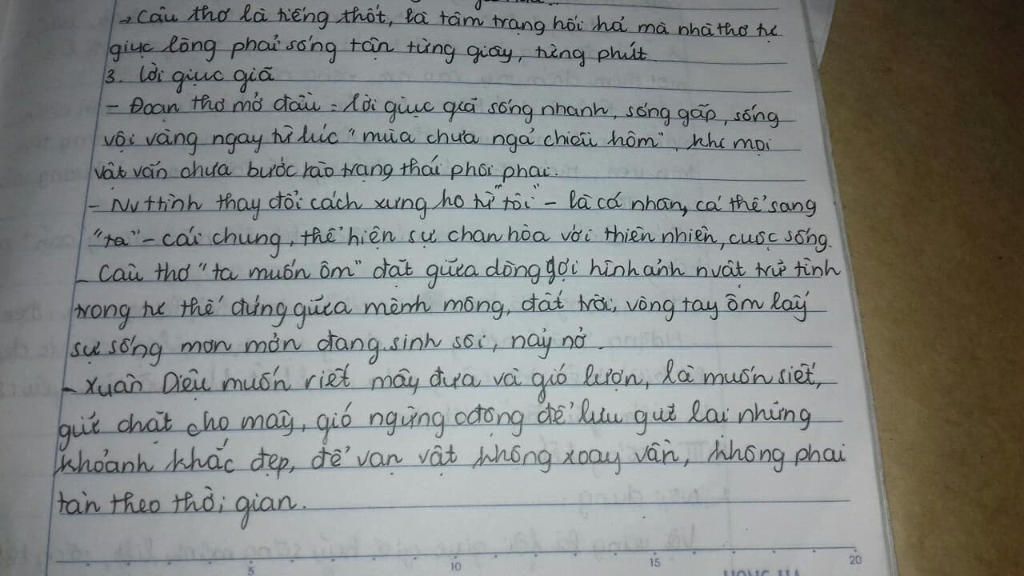 → Câu thơ là tiếng thốt, là tâm trạng hối hả mà nhà thơ tự
giục lòng phải sống tận từng giây, từng phút.
3. lời giục giã
- Đoạn thơ mở đầu = lời giục giã sống nhanh, sống gấp, sống
vội vàng ngay từ lúc "mùa chưa ngả chiều hôm", khi mọi
vật vẫn chưa bước vào trạng thái phôi phai.
- Nv thình thay đổi cách xưng hô từ "tôi" - là cá nhân, cá thể sang
"ta" - cái chung, thể hiện sự chan hòa với thiên nhiên, cuộc sống.
- Câu thơ "ta muốn ôm" đặt giữa dòng gợi hình ảnh nvật trữ tình
trong tư thế đứng giữa mênh mông, đất trời, vòng tay ôm lấy
sự sống mơn mởn đang sinh sôi, nảy nở.
- Xuân Diệu muốn riết mây đưa và gió lượn, là muốn siết,
giữ chặt cho mây, gió ngừng đọng để lưu giữ lại những
khoảnh khắc đẹp, để vạn vật không xoay vần, không phai
tàn theo thời gian.
5 10 15 20